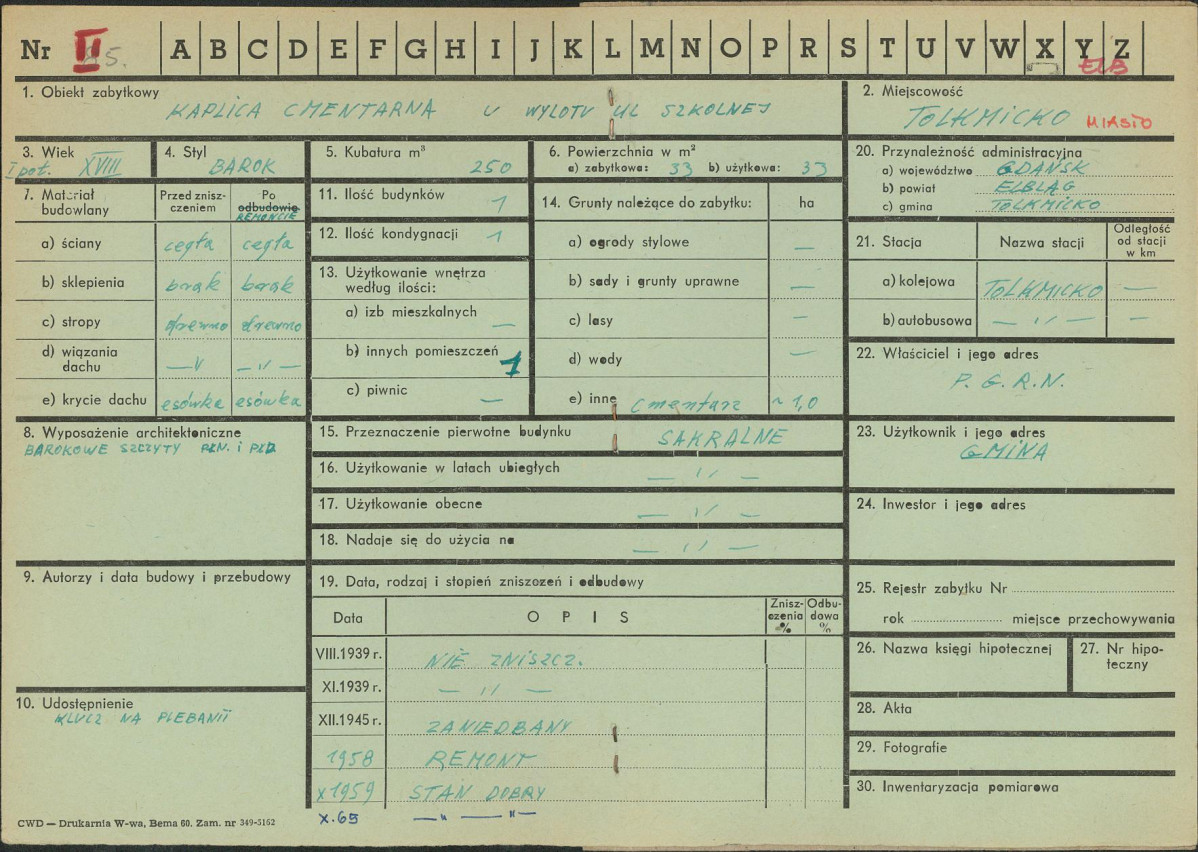 Nr III A B C D E F G H I J K L M N O P R S T U V W X Y Z
ELB
1. Obiekt zabytkowy
KAPLICA CMENTARNA U WYLOTU UL SZKOLNEJ
2. Miejscowość
TOLKMICKO MIASTO
3. Wiek
I poł. XVIII
4. Styl
BAROK
5. Kubatura m³
250
6. Powierzchnia w m²
a) zabytkowa: 33 b) użytkowa: 33
20. Przynależność administracyjna
a) województwo GDAŃSK
b) powiat ELBLĄG
c) gmina TOLKMICKO
7. Materiał budowlany
Przed zniszczeniem
Po odbudowie
REMONCIE
a) ściany cegła cegła
b) sklepienia brak brak
c) stropy drewno drewno
d) wiązania dachu — " — " —
e) krycie dachu esówka esówka
11. Ilość budynków 1
12. Ilość kondygnacji 1
13. Użytkowanie wnętrza
według ilości:
a) izb mieszkalnych —
b) innych pomieszczeń 1
c) piwnic —
14. Grunty należące do zabytku: ha
a) ogrody stylowe —
b) sady i grunty uprawne —
c) lasy —
d) wody —
e) inne cmentarz ~ 1,0
21. Stacja Nazwa stacji Odległość od stacji w km
a) kolejowa TOLKMICKO —
b) autobusowa — " — —
22. Właściciel i jego adres
P. G. R. N.
8. Wyposażenie architektoniczne
BAROKOWE SZCZYTY PŁN. i PŁD.
15. Przeznaczenie pierwotne budynku SAKRALNE
16. Użytkowanie w latach ubiegłych — " —
17. Użytkowanie obecne — " —
18. Nadaje się do użycia na — " —
23. Użytkownik i jego adres
GMINA
24. Inwestor i jego adres
9. Autorzy i data budowy i przebudowy
19. Data, rodzaj i stopień zniszczeń i odbudowy
Data OPIS Zniszczenia % Odbudowa %
VIII.1939 r. NIE ZNISZCZ.
XI.1939 r. — " —
XII.1945 r. ZANIEDBANY
1958 REMONT
X 1959 STAN DOBRY
X.65 — " — " —
25. Rejestr zabytku Nr
rok miejsce przechowywania
26. Nazwa księgi hipotecznej
27. Nr hipoteczny
28. Akta
29. Fotografie
30. Inwentaryzacja pomiarowa
10. Udostępnienie
KLUCZ NA PLEBANII
CWD — Drukarnia W-wa, Bema 60. Zam. nr 349-5162